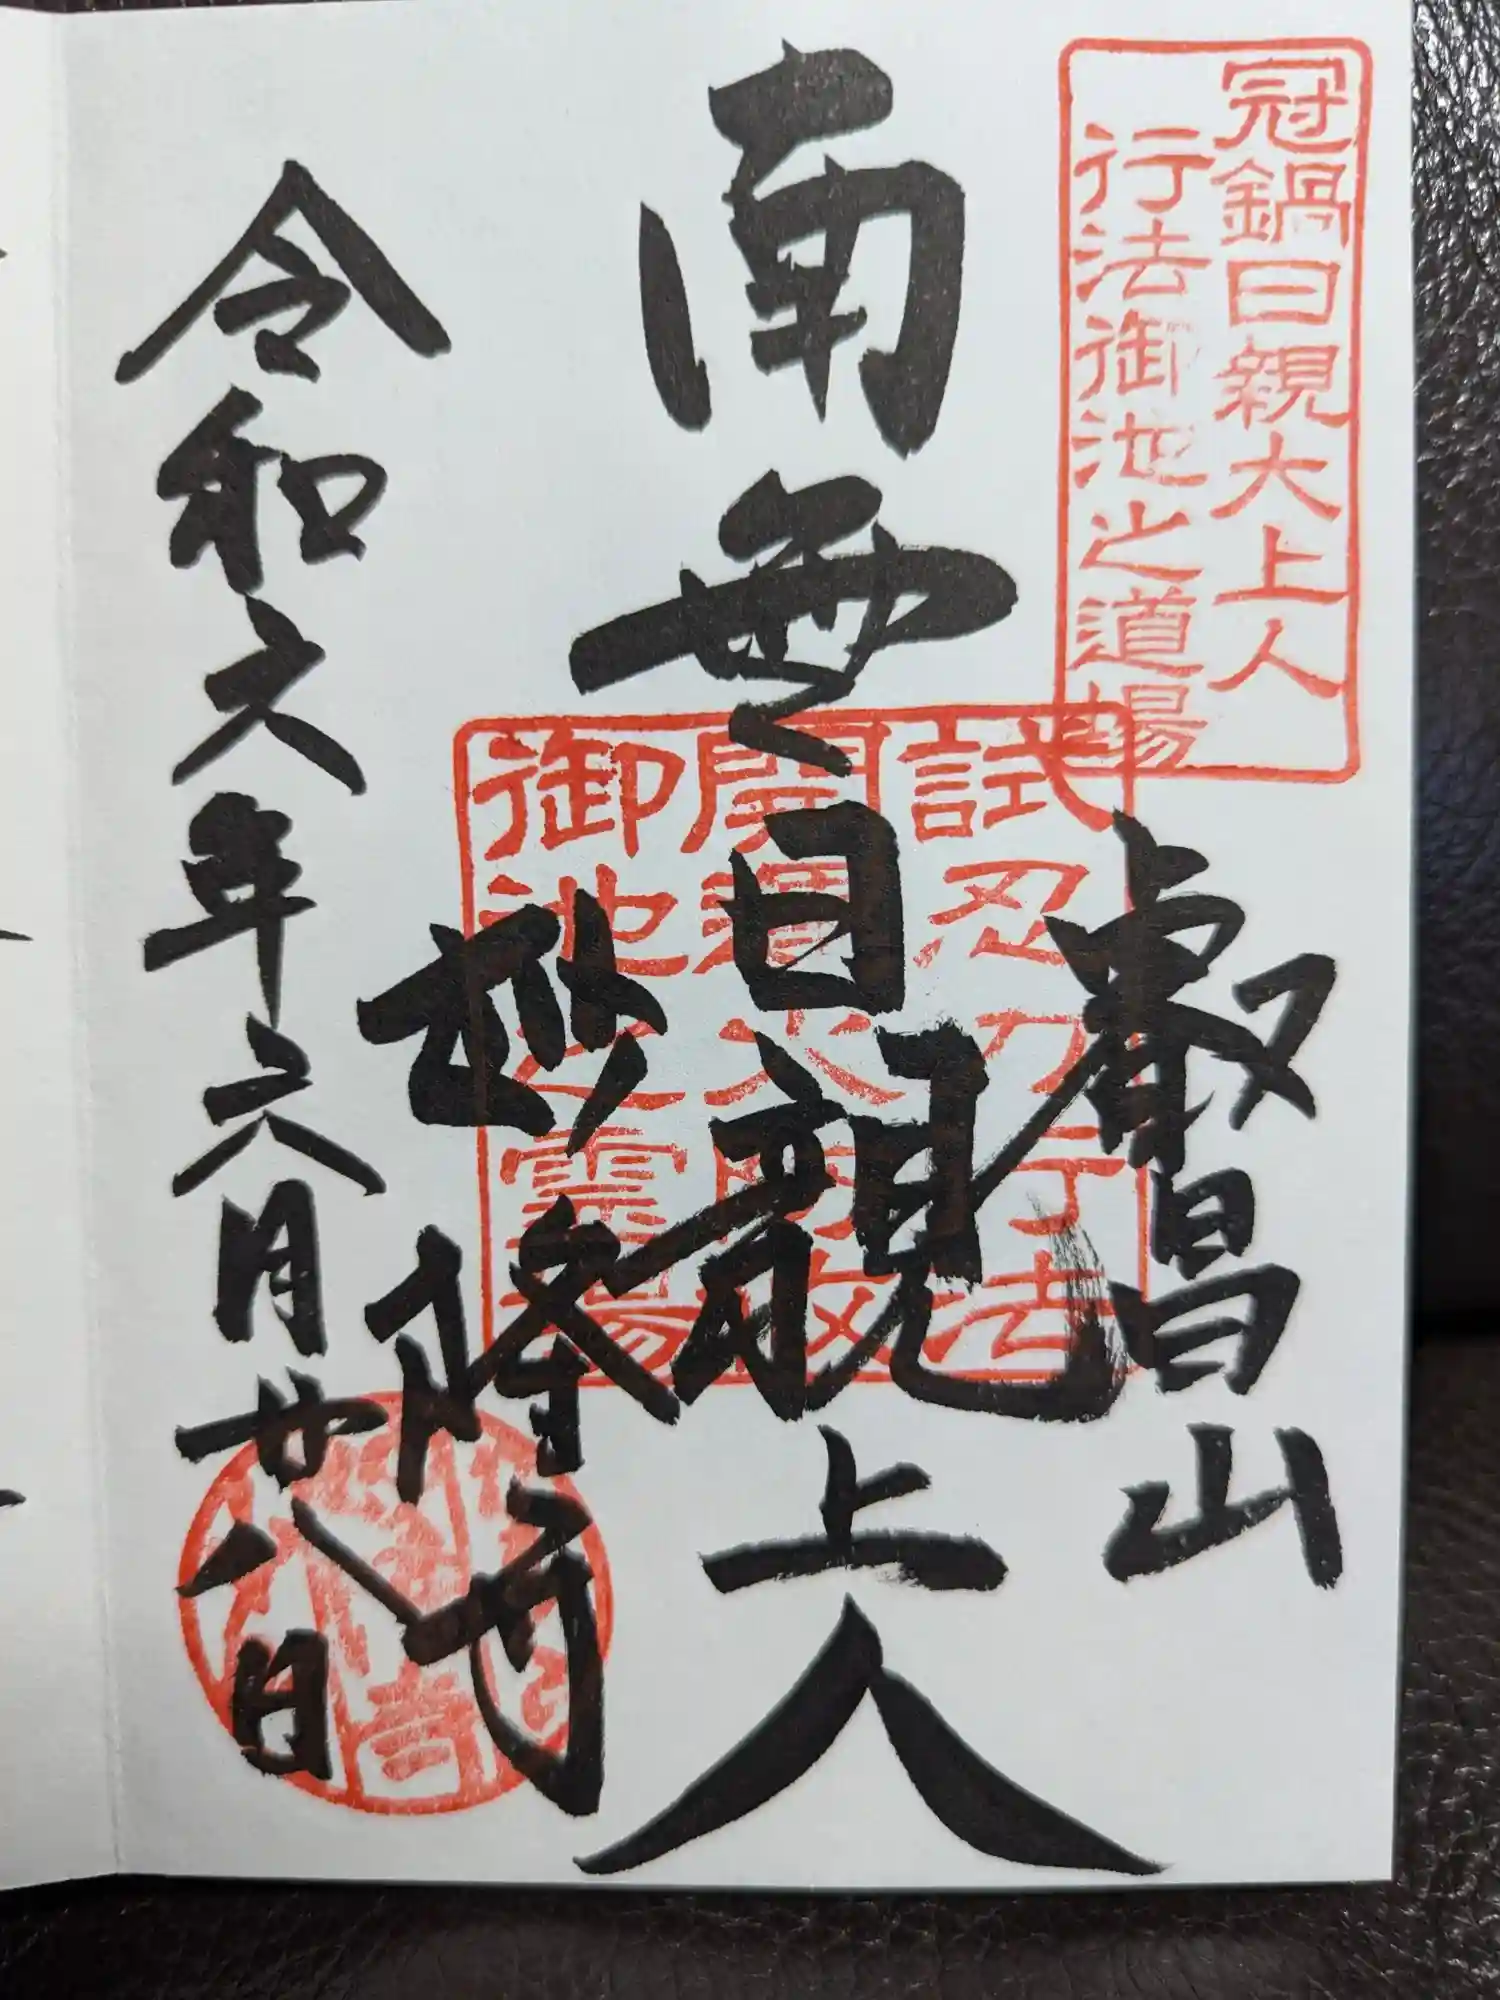 冠鍋日親大上人
行法御池之道場
叡昌山
南無日親上人
試忍力行法
御池之霊場
妙隆寺
令和六年六月廿八日